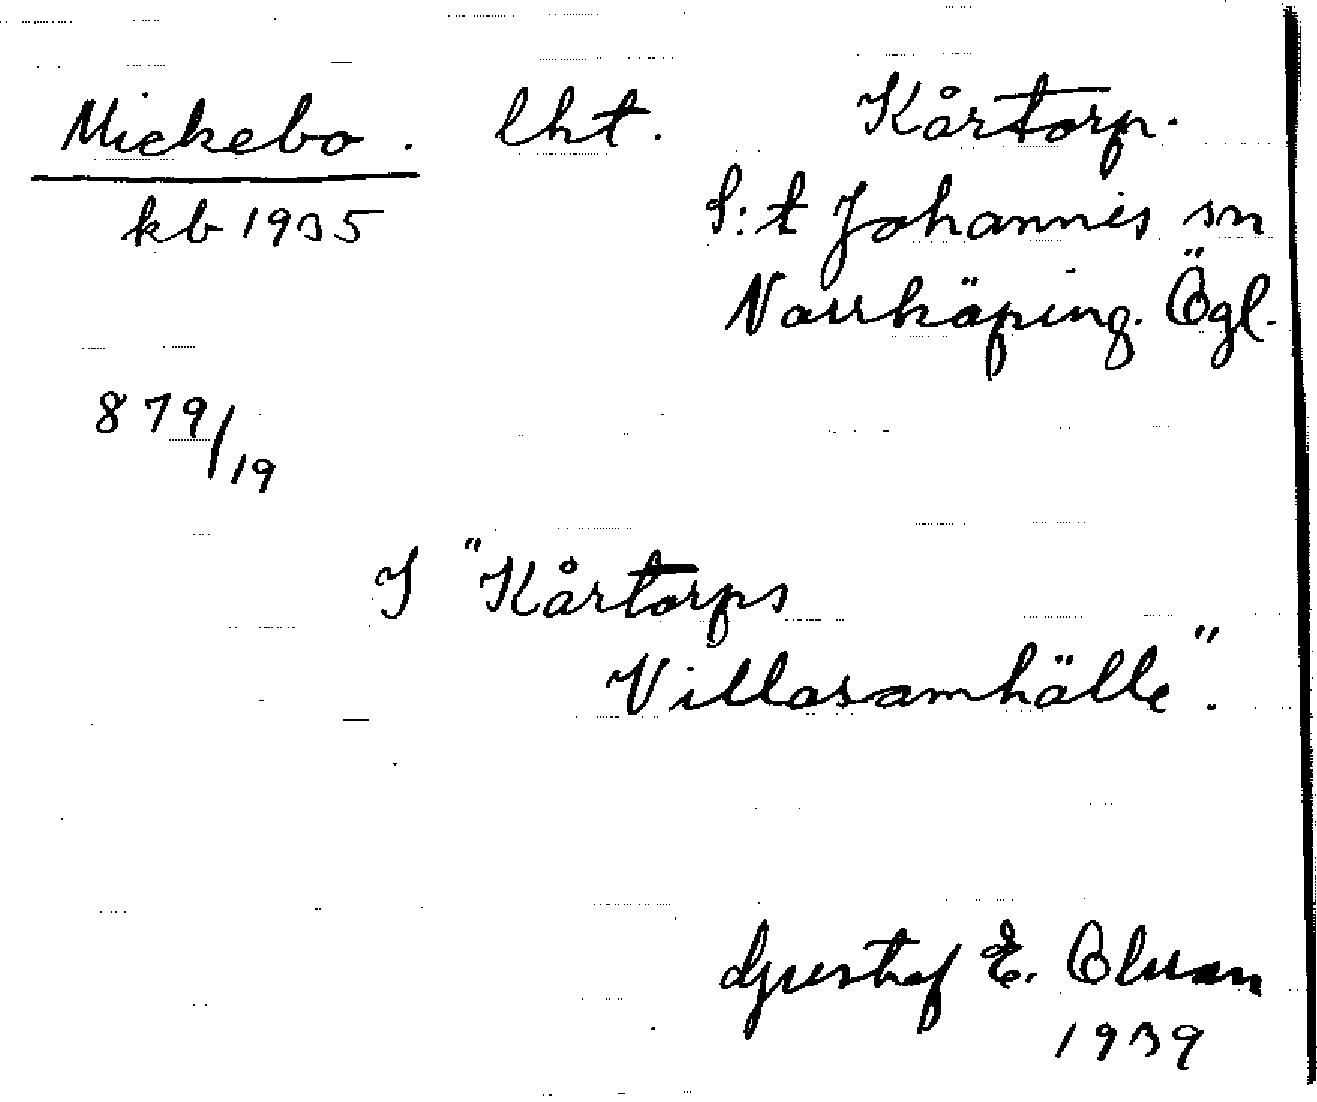 Mickebo. lht. Kårtorp.
kb 1935 S:t Johannis sn
Norrköping. Ögl.
879/19
I "Kårtorps
Villasamhälle".
Gustaf E. Olsson
1939